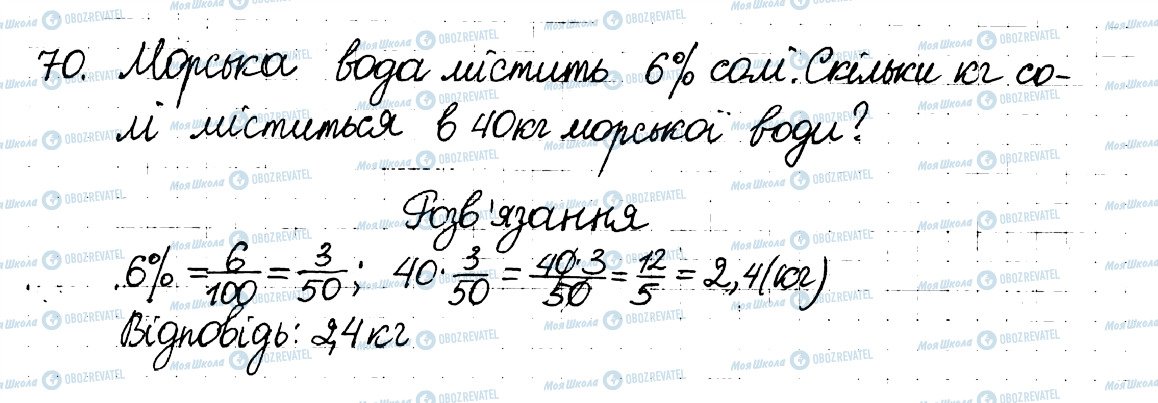 70. Морська вода містить 6% солі. Скільки кг со-
лі міститься в 40кг морської води?
Розв'язання
6% = 6/100 = 3/50; 40 · 3/50 = 40·3/50 = 12/5 = 2,4(кг)
Відповідь: 2,4кг